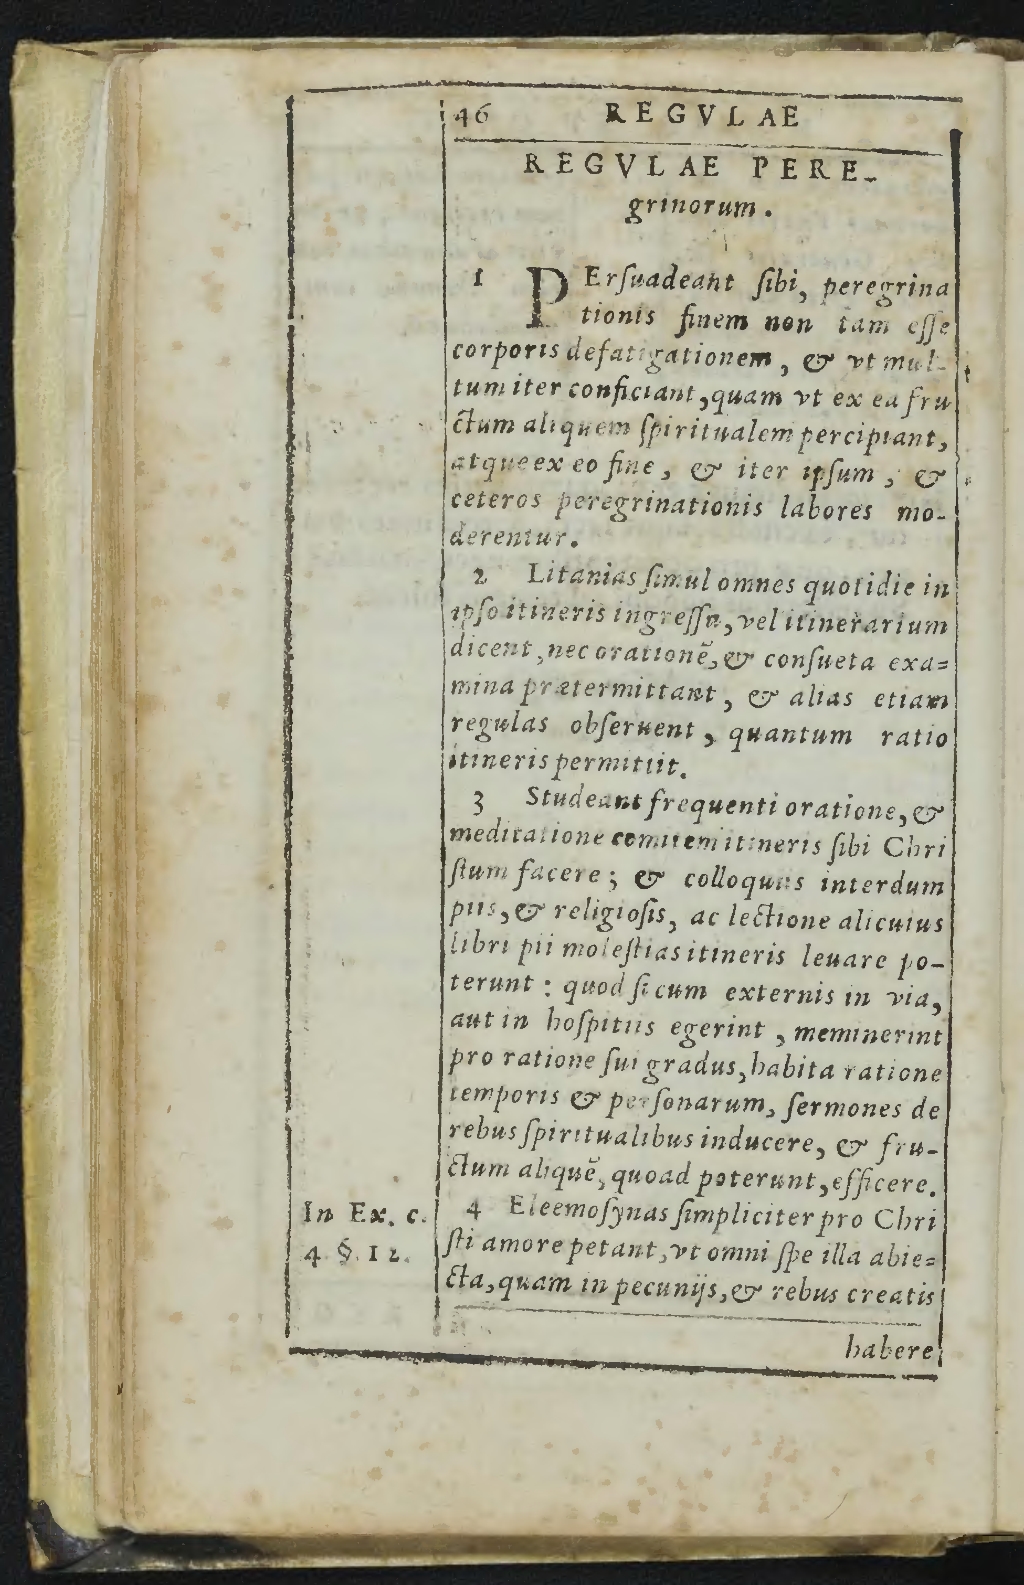 46 REGVLAE
REGVLAE PERE-
grinorum.
1 PErſuadeant ſibi, peregrina
tionis finem non tam eſſe
corporis defatigationem, & vt mul-
tum iter conficiant, quam vt ex ea fru
ctum aliquem ſpiritualem percipiant,
atque ex eo fine, & iter ipſum, &
ceteros peregrinationis labores mo-
derentur.
2 Litanias ſimul omnes quotidie in
ipſo itineris ingreſſu, vel itinerarium
dicent, nec orationē, & conſueta exa=
mina prætermittant, & alias etiam
regulas obſeruent, quantum ratio
itineris permittit.
3 Studeant frequenti oratione, &
meditatione comitem itineris ſibi Chri
ſtum facere; & colloquiis interdum
piis, & religioſis, ac lectione alicuius
libri pii moleſtias itineris leuare po-
terunt: quod ſi cum externis in via,
aut in hoſpitiis egerint, meminerint
pro ratione ſui gradus, habita ratione
temporis & perſonarum, ſermones de
rebus ſpiritualibus inducere, & fru-
ctum aliquē, quoad poterunt, efficere.
In Ex. c.
4. §. 12.
4 Eleemoſynas ſimpliciter pro Chri
ſti amore petant, vt omni ſpe illa abie=
cta, quam in pecunijs, & rebus creatis
habere